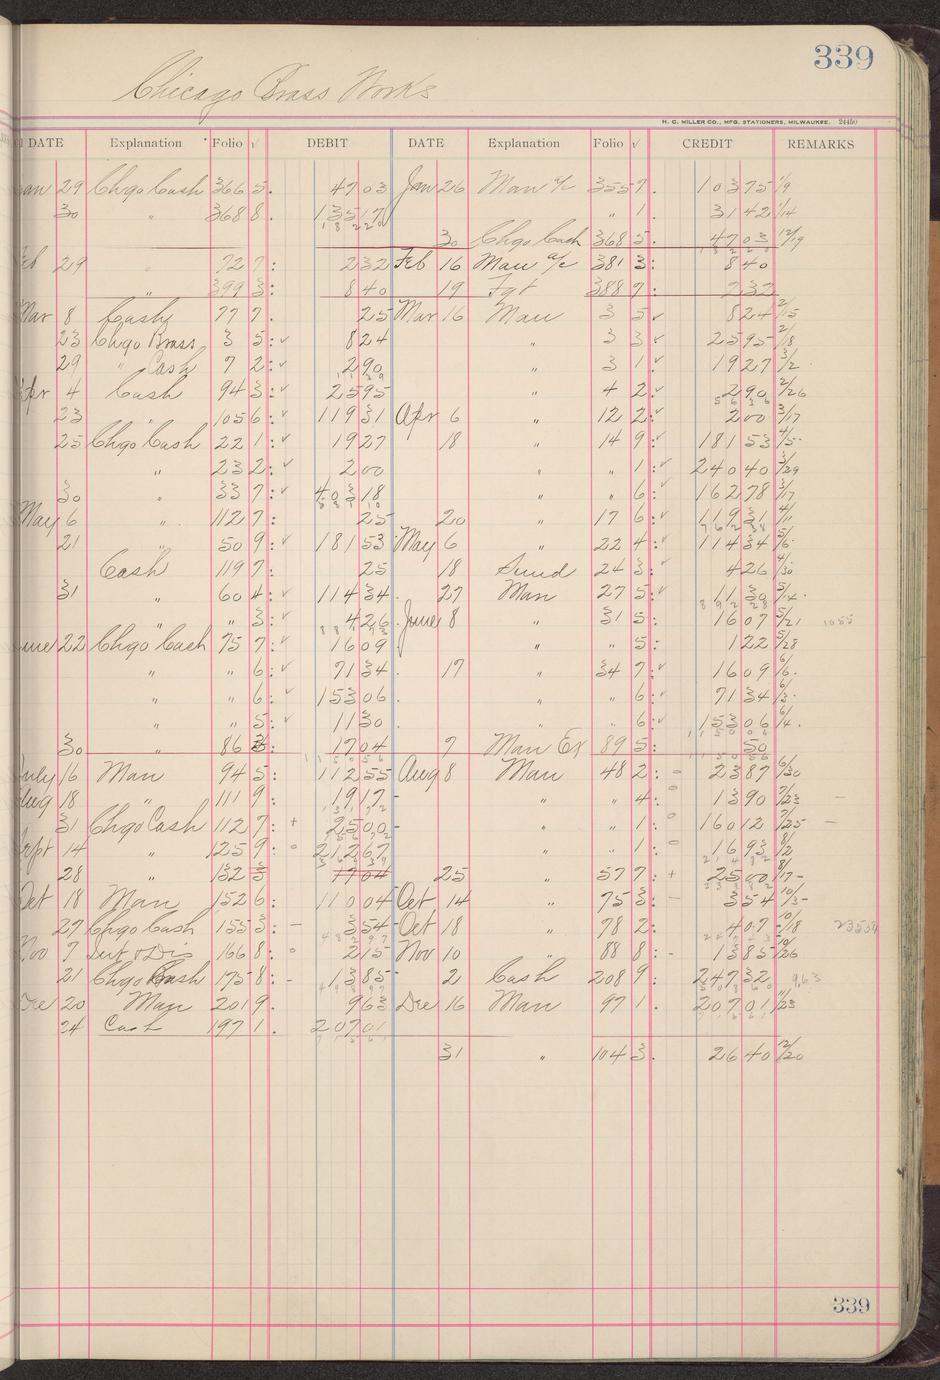 339
Chicago Brass Works
H. C. MILLER CO., MFG. STATIONERS, MILWAUKEE. 24450
DATE Explanation Folio √ DEBIT DATE Explanation Folio √ CREDIT REMARKS
an 29 Chgo Cash 366 5. 47 03 Jan 26 Man a/c 355 7. 103 75 1/9
30 " 368 8. 135 17 " 1. 31 42 1/14
30 Chgo Cash 368 5. 47 03 12/19
eb 29 " 72 7: 2 32 Feb 16 Man a/c 381 3: 8 40
" 399 3: 8 40 19 Fgt 388 7: 2 32
Mar 8 Cash 77 7. 25 Mar 16 Man 3 5 √ 8 24 2/15
23 Chgo Brass 3 5: √ 8 24 " 3 3 √ 25 95 2/18
29 " Cash 7 2: √ 2 90 " 3 1 √ 19 27 3/2
Apr 4 Cash 94 3: √ 25 95 " 4 2 √ 2 90 2/26
23 " 105 6: √ 119 31 Apr 6 " 12 2: √ 2 00 3/17
25 Chgo Cash 22 1: √ 19 27 18 " 14 9: √ 181 53 4/5
" 23 2: √ 2 00 " " 1: √ 240 40 3/29
30 " 33 7: √ 403 18 " " 6: √ 162 78 3/17
May 6 " 112 7: 25 20 " 17 6: √ 119 31 4/11
21 " 50 9: √ 181 53 May 6 " 22 4: √ 114 34 5/6
Cash 119 7: 25 18 Sund 24 3: √ 4 26 4/30
31 " 60 4: √ 114 34 27 Man 27 5: √ 11 30 5/14
" " 3: √ 4 26 June 8 " 31 5: 16 07 5/21 1055
une 22 Chgo Cash 75 7: √ 16 09 " " 5: 1 22 5/28
" " 6: √ 71 34 17 " 34 7: √ 16 09 6/6
" " 6: √ 153 06 " " 6: √ 71 34 6/3
" " 5: √ 11 30 " " 6: √ 153 06 6/4
30 " 86 3: 17 04 7 Man Ex 89 5: 50
July 16 Man 94 5: 112 55 Aug 8 Man 48 2: - 23 87 6/30
Aug 18 " 111 9: 19 17 - " " 4: o 13 90 7/23 -
31 Chgo Cash 112 7: + 25 00 - " " 1: o 160 12 7/25 -
ept 14 " 125 9: o 212 67 " " 1: o 16 93 8/2
28 " 132 3 17 04 25 " 57 7: + 25 00 8/17 -
Oct 18 Man 152 6: 110 04 Oct 14 " 75 3: - 3 54 10/3 -
27 Chgo Cash 155 3: - 3 54 - Oct 18 " 78 2: 4 07 10/18
Nov 7 Int & Dis 166 8: o 2 15 Nov 10 " 88 8: - 13 85 10/26
21 Chgo Cash 175 8: - 13 85 - 21 Cash 208 9: 247 32 9,63
Dec 20 Man 201 9: 9 63 Dec 16 Man 97 1: 207 01 11/23
24 Cash 197 1: 207 01
31 " 104 3. 26 40 12/20
339